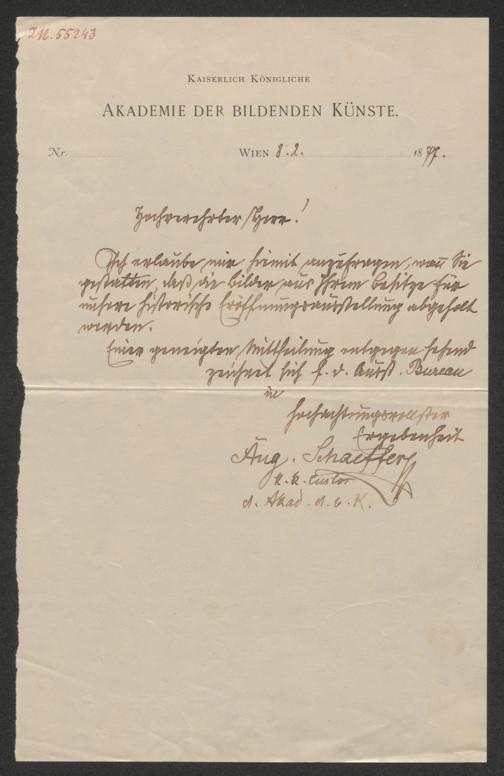 I.N. 55243
KAISERLICH KÖNIGLICHE
AKADEMIE DER BILDENDEN KÜNSTE.
Nr.
WIEN 8.2. 1877.
Hochverehrter Herr!
Ich erlaube mir hiemit anzufragen, wann Sie
gestatten, daß die Bilder aus Ihrem Besitze für
unsere historische Eröffnungsausstellung abgeholt
werden.
Einer geneigten Mittheilung entgegen sehend
zeichnet sich f. d. Ausst. Bureau
in
hochachtungsvollster
Ergebenheit
Aug. Schaeffer
k. k. Custos
d. Akad. d. b. K.